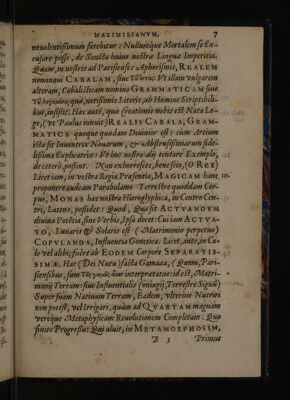 MAXIMILIANUM. 7
neuolentißimum fatebitur: Nullumque Mortalem se Ex-
cusare posse, de Sancta huius nostræ Linguæ Imperitia.
Quam, in nostris ad Parisienses Aphorismis, REALEM
nominaui CABALAM, siue Ut illam vulgarem
alteram, Cabalisticam nomino GRAMMATICAM siue
quæ, notißimis Literis, ab Homine Scriptibili-
bus, insistit. Hæc autē, quæ Creationis nobis est Nata Le-
ge, (vt Paulus innuit) REALIS CABALA, GRAM-
MATICA quoque quædam Diuinior est: cum Artium
ista sit Inuentrix Nouarum, & Abstrusissimarum fide-
lißima Explicatrix: Vt hoc nostro alij tentare Exemplo,
de cetero, possint. Non exhorresces, bene scio, (O REX)
Licet iam, in vestra Regia Præsentia, MAGICAM hanc 10.
proponere audeam Parabolam: Terrestre quoddam Cor-
pus, MONAS hæc nostra Hieroglyphica, in Centro Cen-
tri, Latens, poßidet: Quod, Quæ sit ACTVANDVM
diuina Potētia, sine Verbis, Ipsa docet: Cui iam ACTVA-
TO, Lunaris & Solaris est (Matrimonio perpetuo)
COPVLANDA, Influentia Genetica: Licet, ante, in Cæ-
lo vel alibi, fuerāt EODEM Corpore SEPARATIS-
SIMÆ. Hac (Dei Nutu) facta Gamaæa, (Quam, Pari-
siensibus, sum interpretatus: id est, Matri-
monij Terram: siue Influentialis Coniugij, Terrestre Signū)
Super suam Natiuam Terram, Eadem, vlterius Nutriri
non potest, vel Irrigari, quàm ad QVARTAM magnam
veréque Metaphysicam Reuolutionem Completam. Quo
finito Progressu: Qui aluit, in METAMORPHOSIM,
B 3 Primus